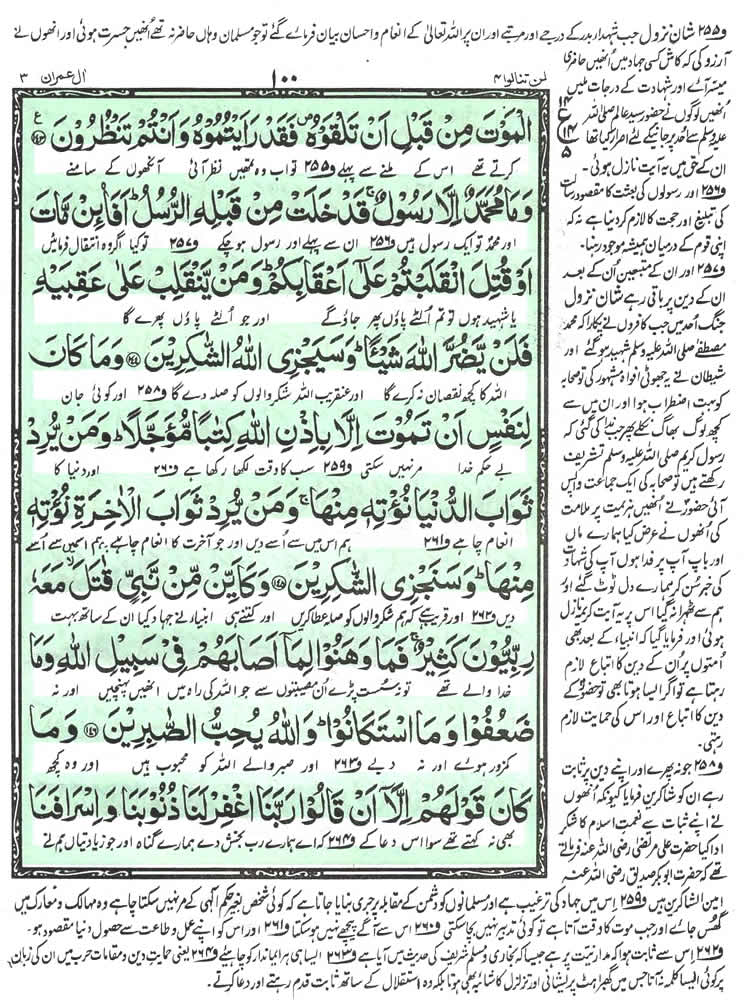 و۲۵۵ شان نزول جب شہداء بدر کے درجے اور مرتبے اور ان پر اللہ تعالیٰ کے انعام و احسان بیان فرمائے گئے تو جو مسلمان وہاں حاضر نہ تھے اُنھیں حسرت ہوئی اور انھوں نے
آرزو کی کہ کاش کسی جہاد میں اُنھیں حاضری
میسر آئے اور شہادت کے درجات ملیں
اُنھیں لوگوں نے حضور سید عالم صلی اللہ
علیہ وسلم سے اُحد پر جانے کے لئے اصرار کیا تھا
ان کے حق میں یہ آیت نازل ہوئی۔
و۲۵۶ اور رسولوں کی بعثت کا مقصود رسالت
کی تبلیغ اور حجت کا لازم کر دینا ہے نہ کہ
اپنی قوم کے درمیان ہمیشہ موجود رہنا۔
و۲۵۷ اور ان کے متبعین اُن کے بعد
ان کے دین پر باقی رہے شان نزول
جنگ اُحد میں جب کافروں نے پکارا کہ محمد
مصطفےٰ صلی اللہ علیہ وسلم شہید ہو گئے اور
شیطان نے یہ جھوٹی افواہ مشہور کی تو صحابہ
کو بہت اضطراب ہوا اور ان میں سے
کچھ لوگ بھاگ نکلے پھر جب ندا کی گئی کہ
رسول کریم صلی اللہ علیہ وسلم تشریف
رکھتے ہیں تو صحابہ کی ایک جماعت واپس
آئی حضور نے انھیں ہزیمت پر ملامت
کی اُنھوں نے عرض کیا ہمارے ماں
اور باپ آپ پر فدا ہوں آپ کی شہادت
کی خبر سُن کر ہمارے دل ٹوٹ گئے اور
ہم سے ٹھہرا نہ گیا اس پر یہ آیت کریمہ نازل
ہوئی اور فرمایا گیا کہ انبیاء کے بعد بھی
اُمتوں پر اُن کے دین کا اتباع لازم
رہتا ہے تو اگر ایسا ہوتا بھی تو حضور کے
دین کا اتباع اور اس کی حمایت لازم
رہتی۔
و۲۵۸ جو نہ پھرے اور اپنے دین پر ثابت
رہے ان کو شاکرین فرمایا کیونکہ اُنھوں
نے اپنے ثبات سے نعمت اسلام کا شکر
ادا کیا حضرت علی مرتضیٰ رضی اللہ عنہ فرماتے
تھے کہ حضرت ابوبکر صدیق رضی اللہ عنہ
لن تنالوا ۴
۱۰۰
آل عمران ۳
الْمَوْتَ مِنْ قَبْلِ اَنْ تَلْقَوْهُ ۪ فَقَدْ رَاَیْتُمُوْهُ وَ اَنْتُمْ تَنْظُرُوْنَ ۝۱۴۳
کرتے تھے اس کے ملنے سے پہلے و۲۵۵ تو اب وہ تمھیں نظر آئی آنکھوں کے سامنے
وَ مَا مُحَمَّدٌ اِلَّا رَسُوْلٌ ۚ قَدْ خَلَتْ مِنْ قَبْلِهِ الرُّسُلُ ؕ اَفَاۡىِٕنْ مَّاتَ
اور محمد تو ایک رسول ہیں و۲۵۶ ان سے پہلے اور رسول ہو چکے و۲۵۷ تو کیا اگر وہ انتقال فرمائیں
اَوْ قُتِلَ انْقَلَبْتُمْ عَلٰۤی اَعْقَابِكُمْ ؕ وَ مَنْ یَّنْقَلِبْ عَلٰی عَقِبَیْهِ
یا شہید ہوں تو تم اُلٹے پاؤں پھر جاؤ گے اور جو اُلٹے پاؤں پھرے گا
فَلَنْ یَّضُرَّ اللّٰهَ شَیْـًٔا ؕ وَ سَیَجْزِی اللّٰهُ الشّٰكِرِیْنَ ۝۱۴۴ وَ مَا كَانَ
اللہ کا کچھ نقصان نہ کرے گا اور عنقریب اللہ شکر والوں کو صلہ دے گا و۲۵۸ اور کوئی جان
لِنَفْسٍ اَنْ تَمُوْتَ اِلَّا بِاِذْنِ اللّٰهِ كِتٰبًا مُّؤَجَّلًا ؕ وَ مَنْ یُّرِدْ
بے حکم خدا مر نہیں سکتی و۲۵۹ سب کا وقت لکھا رکھا ہے و۲۶۰ اور دنیا کا
ثَوَابَ الدُّنْیَا نُؤْتِهٖ مِنْهَا ۚ وَ مَنْ یُّرِدْ ثَوَابَ الْاٰخِرَةِ نُؤْتِهٖ
انعام چاہے و۲۶۱ ہم اس میں سے اُسے دیں اور جو آخرت کا انعام چاہے ہم اسمیں سے اُسے
مِنْهَا ؕ وَ سَنَجْزِی الشّٰكِرِیْنَ ۝۱۴۵ وَ كَاَیِّنْ مِّنْ نَّبِیٍّ قٰتَلَ ۙ مَعَهٗ
دیں و۲۶۲ اور قریب ہے کہ ہم شکر والوں کو صلہ عطا کریں اور کتنے ہی انبیاء نے جہاد کیا ان کے ساتھ بہت
رِبِّیُّوْنَ كَثِیْرٌ ۚ فَمَا وَهَنُوْا لِمَاۤ اَصَابَهُمْ فِیْ سَبِیْلِ اللّٰهِ وَ مَا
خدا والے تھے تو نہ سست پڑے اُن مصیبتوں سے جو اللہ کی راہ میں انھیں پہنچیں اور نہ
ضَعُفُوْا وَ مَا اسْتَكَانُوْا ؕ وَ اللّٰهُ یُحِبُّ الصّٰبِرِیْنَ ۝۱۴۶ وَ مَا
کمزور ہوئے اور نہ دبے و۲۶۳ اور صبر والے اللہ کو محبوب ہیں اور وہ کچھ
كَانَ قَوْلَهُمْ اِلَّاۤ اَنْ قَالُوْا رَبَّنَا اغْفِرْ لَنَا ذُنُوْبَنَا وَ اِسْرَافَنَا
بھی نہ کہتے تھے سوا اس دعا کے و۲۶۴ کہ اے ہمارے رب بخش دے ہمارے گناہ اور جو زیادتیاں ہم نے
امین الشاکرین ہیں و۲۵۹ اس میں جہاد کی ترغیب ہے اور مسلمانوں کو دشمن کے مقابلہ پر جری بنایا جاتا ہے کہ کوئی شخص بغیر حکم الٰہی کے مر نہیں سکتا چاہے وہ مہالک و معارک میں
گھس جائے اور جب موت کا وقت آتا ہے تو کوئی تدبیر نہیں بچا سکتی و۲۶۰ اس سے آگے پیچھے نہیں ہو سکتا و۲۶۱ اور اس کو اپنے عمل و طاعت سے حصول دنیا مقصود ہو۔
و۲۶۲ اس سے ثابت ہوا کہ مدار نیت پر ہے جیسا کہ بخاری و مسلم شریف کی حدیث میں آیا ہے و۲۶۳ ایسا ہی ہر ایماندار کو چاہئے و۲۶۴ یعنی حمایت دین و مقامات حرب میں ان کی زبان
پر کوئی ایسا کلمہ نہ آتا جس میں گھبراہٹ پریشانی اور تزلزل کا شائبہ بھی ہوتا بلکہ وہ استقلال کے ساتھ ثابت قدم رہتے اور دعا کرتے۔